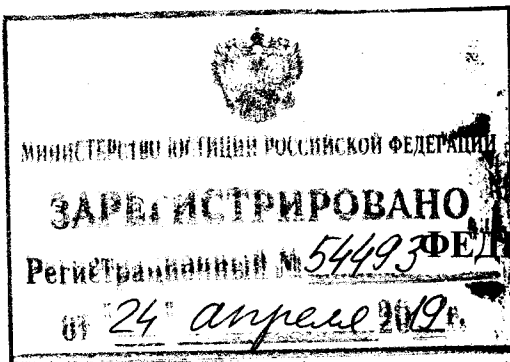 МИНИСТЕРСТВО ЮСТИЦИИ РОССИЙСКОЙ ФЕДЕРАЦИИ
ЗАРЕГИСТРИРОВАНО
Регистрационный № 54493
ФЕД
от "24" апреля 2019 г.